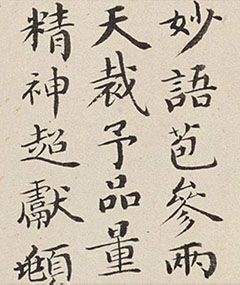 妙語苞參兩
天裁予品量
精神超獻